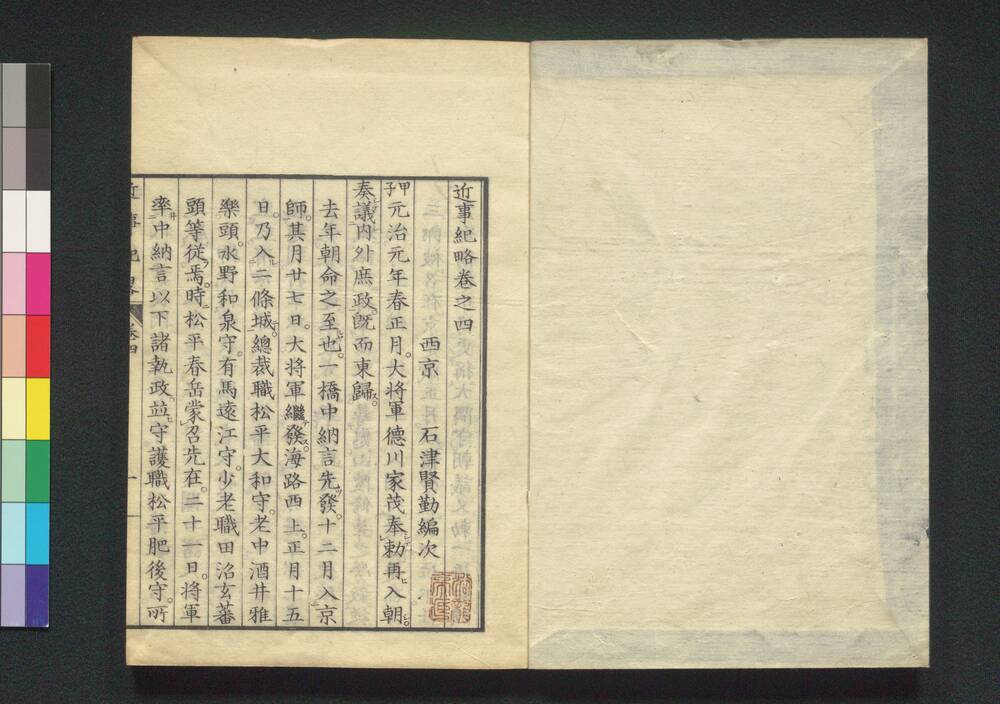 近事紀略巻之四
西京 石津賢勤編次
甲子元治元年春正月。大将軍德川家茂奉勅再入朝。
奏議内外庶政。既而東歸。
去年朝命之至也。一橋中納言先發。十二月入京
師。其月廿七日。大将軍繼發。海路西上。正月十五
日。乃入二條城。總裁職松平大和守。老中酒井雅
樂頭。水野和泉守。有馬遠江守。少老職田沼玄蕃
頭等從焉。時松平春岳蒙召先在。二十一日。将軍
率中納言以下諸執政。竝守護職松平肥後守。所
近事紀畧 卷四 一